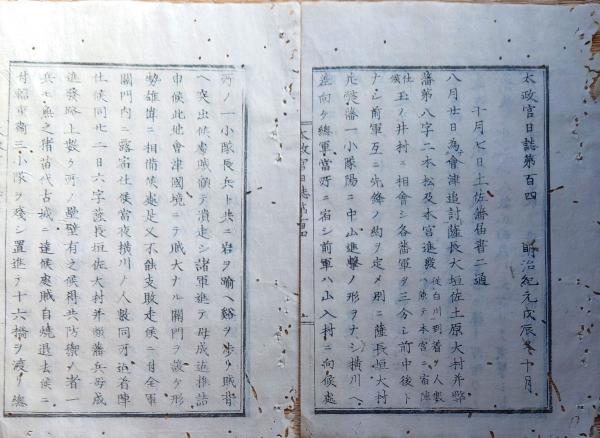 太政官日誌第百四　明治紀元戊辰冬十月
十月七日土佐藩届書二通
八月廿日為會津追討薩長大垣佐土原大村并弊
藩第八字二本松及本宮進發
仕玉ノ井村ニ相會シ各藩軍ヲ三分シ前中後ト
ナシ前軍互ニ先鋒ノ約ヲ定メ別ニ薩長垣大村
左向ケ總軍當所ニ宿シ前軍ハ山入村ニ向候處
河ノ一小隊長兵ト共ニ岩ヲ喩ヘ谿ヲ渉リ賊背
ヘ突出候處賊顧テ潰走シ諸軍進テ母成近推詰
申候此地會津國境ニテ賊大ナル關門ヲ設ケ形
勢雄偉ニ相備候處是又不能支敗走候ニ付全軍
關門内ニ露宿仕候當夜横川ノ人數同所追着陣
仕候同廿二日六字薩長垣佐大村并弊藩兵母成
進發路上數ケ所ノ壘壁有之候得共防禦ノ者一
兵モ無之猪苗代古城ニ達候處賊自燒退去候ニ
付輜重衛三小隊ヲ殘シ置進テ十六橋ヲ渡リ總